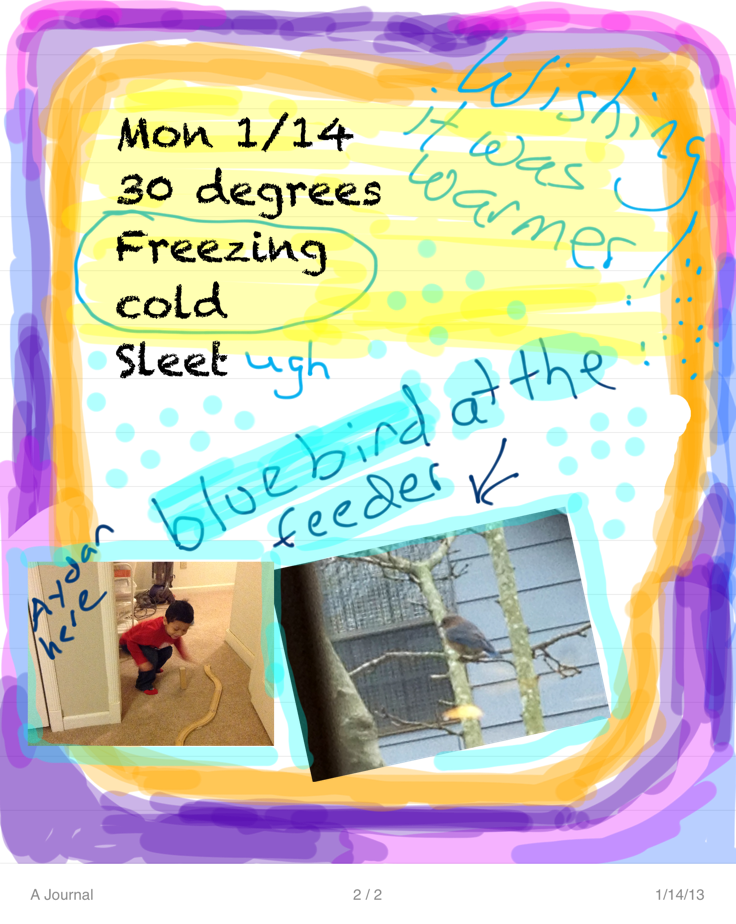 Mon 1/14
30 degrees
Freezing
cold
Sleet ugh
Wishing
it was
warmer!
bluebird at the
feeder
Aydan
here
A Journal
2 / 2
1/14/13